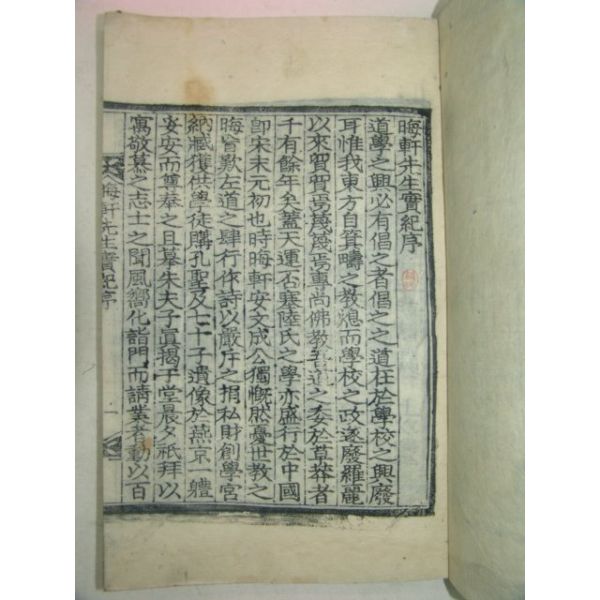 晦軒先生實紀序
道學之興必有倡之者倡之之道在於學校之興廢
耳惟我東方自箕疇之教熄而學校之政遂廢羅麗
以來貿貿焉蔑蔑焉專尚佛教吾道之委於草莽者
千有餘年矣蓋天運否塞陸氏之學亦盛行於中國
即宋末元初也時晦軒安文成公獨慨然憂世教之
晦曾歎左道之肆行作詩以嚴斥之捐私財創學宮
納臧獲供學徒購孔聖及七十子遺像於燕京一軆
妥安而尊奉之且摹朱夫子眞揭于堂晨夕祇拜以
寓敬慕之志士之聞風嚮化詣門而請業者動以百
晦軒先生實紀序
一